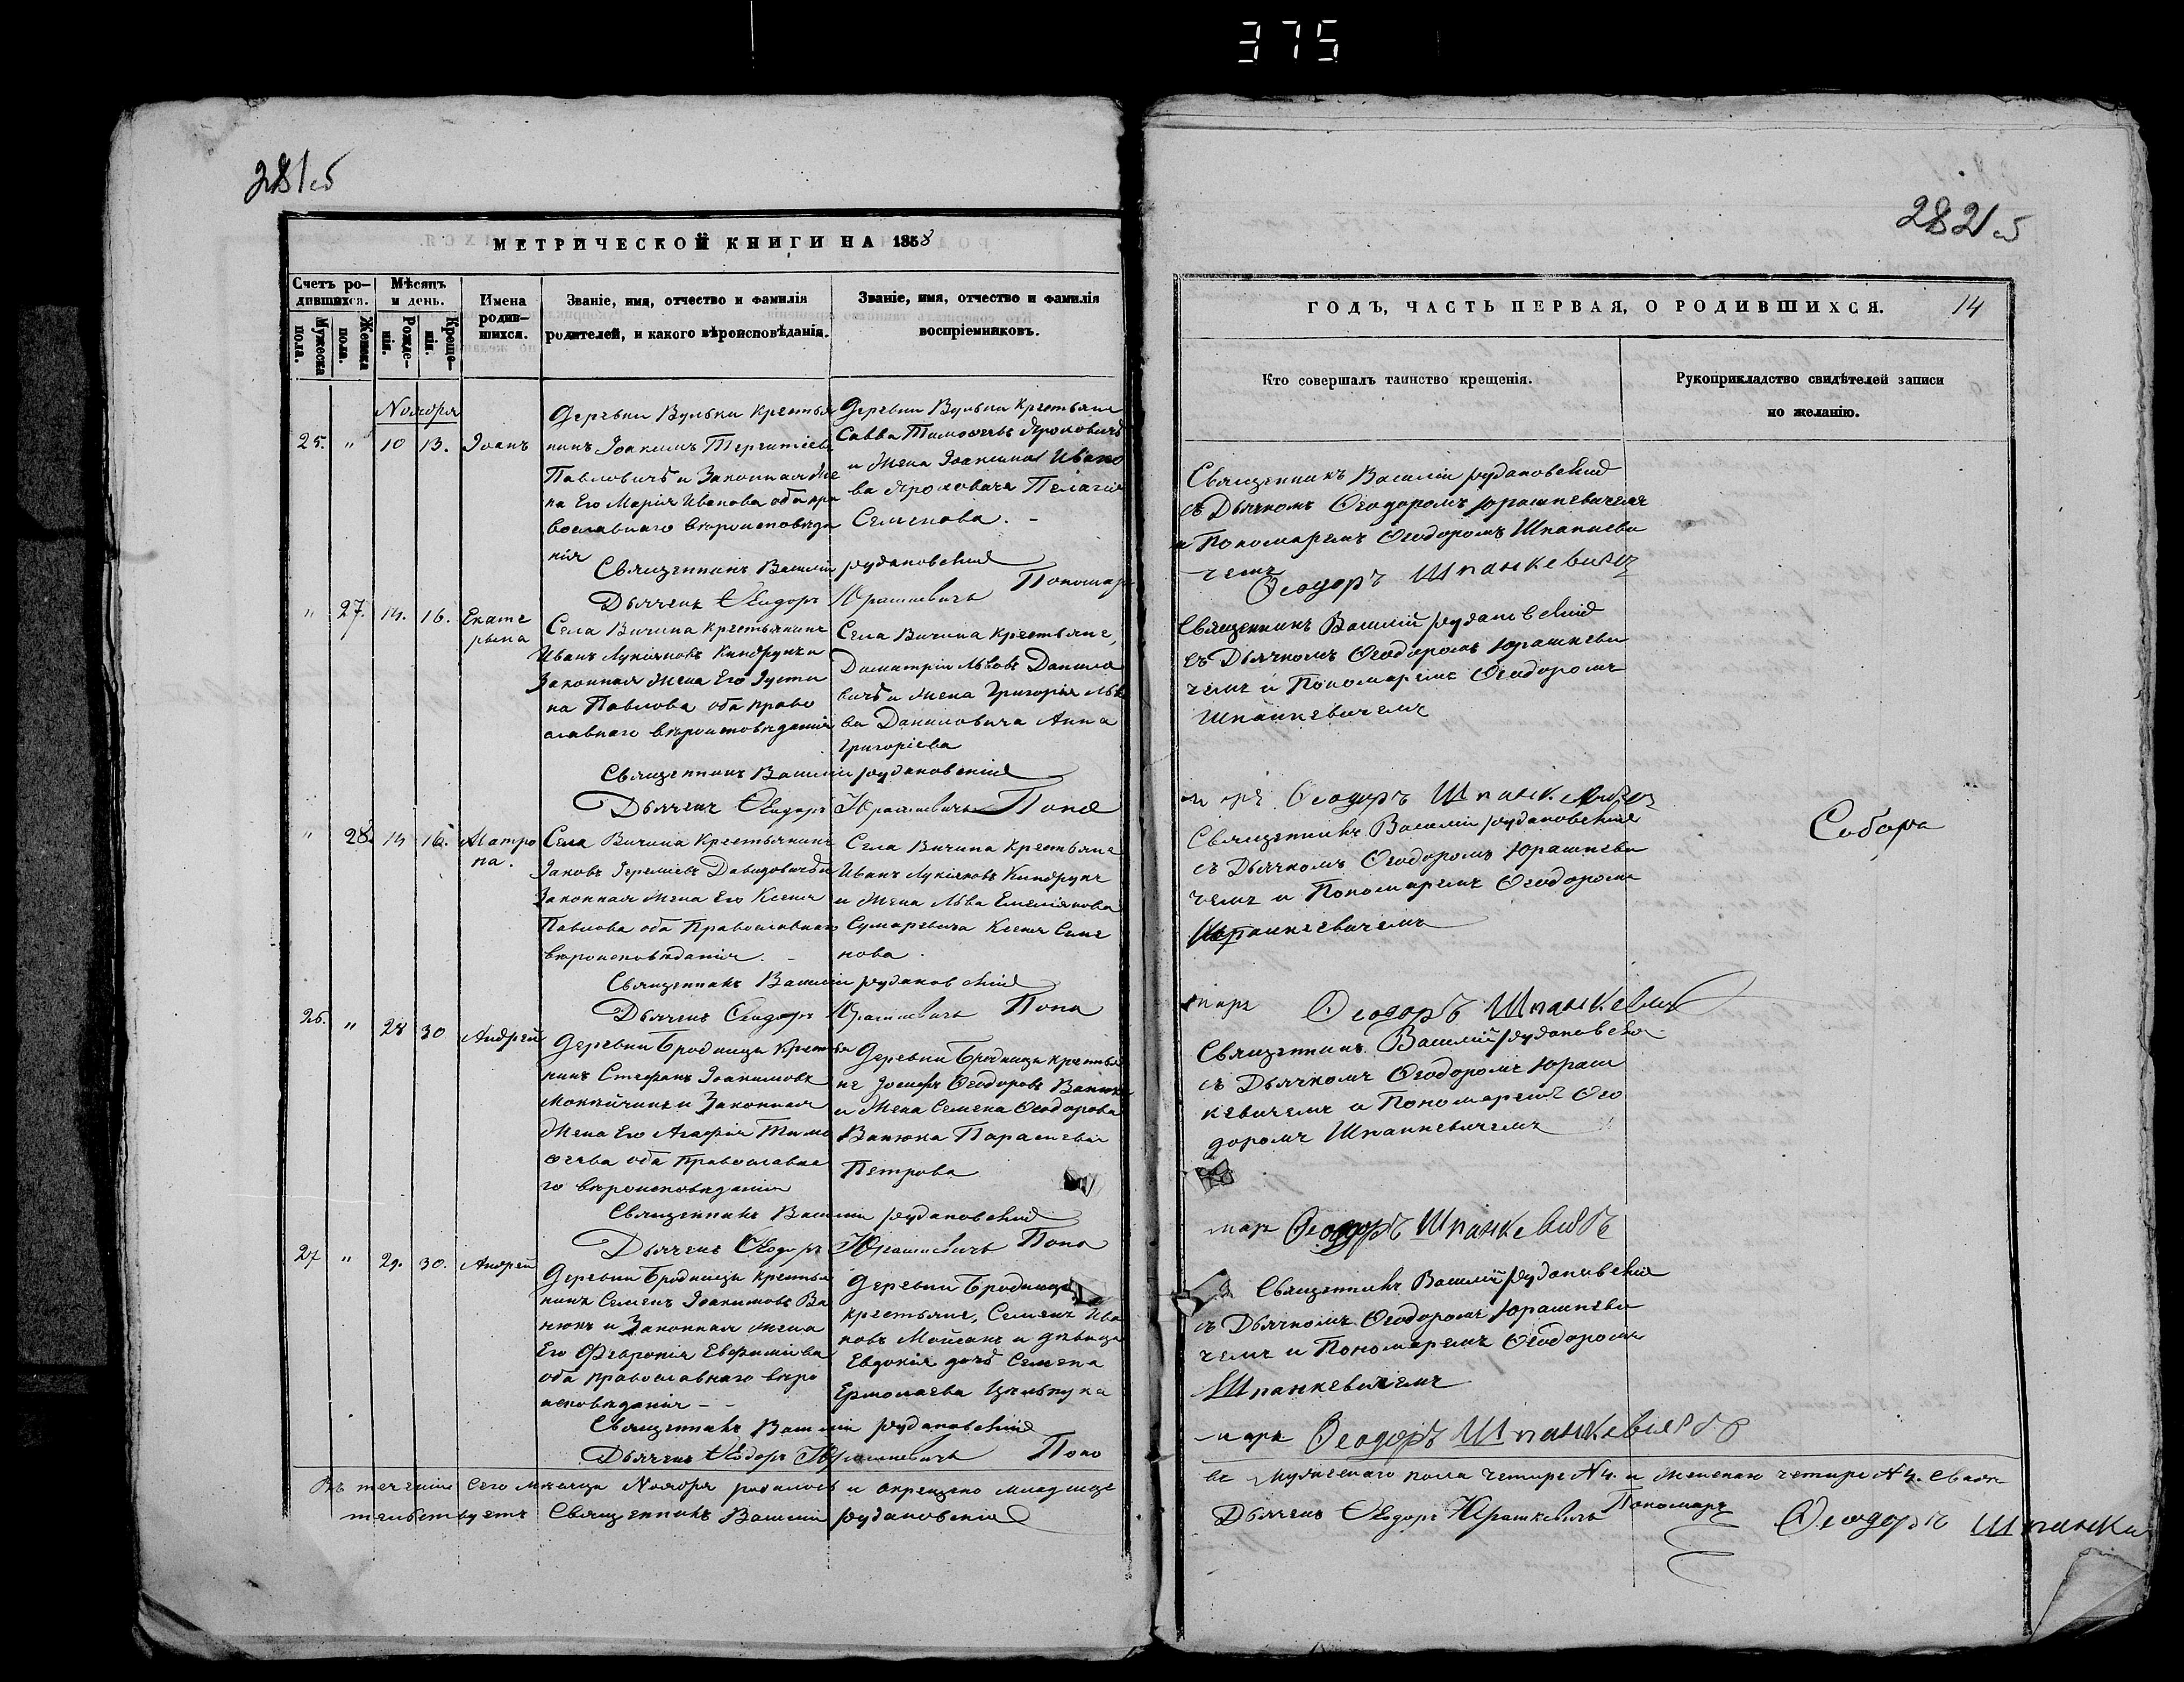 375
281
282
МЕТРИЧЕСКОЙ КНИГИ НА 1858
Счетъ родившихся.
Мужеска пола.
Женска пола.
Мѣсяцъ и день.
Рожденія.
Крещенія.
Имена родившихся.
Званіе, имя, отчество и фамилія родителей, и какого вѣроисповѣданія.
Званіе, имя, отчество и фамилія воспріемниковъ.
Ноября
25. " 10 13. Іоанъ
Деревни Вульки крестья
нинъ Іоакимъ Терентіевъ
Павловичъ и Законная Же
на Его Марія Иванова оба пра
вославнаго вѣроисповѣда
нія
Деревни Вульки крестьяне
Савва Тимоѳеевъ Яроховичъ
и Жена Іоакима Ивано
ва Яроховича Пелагія
Семенова. -
Священникъ Василій Рудаковскій
Дьячекъ Ѳеодоръ Юрашкевичъ Пономар
" 27. 14. 16. Екате
рина
Села Вичина крестьянинъ
Иванъ Лукіановъ Киндрукъ и
Законная Жена Его Іусти
на Павлова оба право
славнаго вѣроисповѣданія
Села Вичина крестьяне,
Димитрій Львовъ Данило
вичъ и Жена Григорія Льво
ва Даниловича Анна
Григоріева
Священникъ Василій Рудаковскій
Дьячекъ Ѳеодоръ Юрашкевичъ Поно
" 28. 14 16. Матро
на.
Села Вичина Крестьянинъ
Іаковъ Іереміевъ Давидовичъ и
Законная Жена Его Ксенія
Павлова оба Православнаго
вѣроисповѣданія. -
Села Вичина крестьяне
Иванъ Лукіановъ Киндрукъ
и Жена Льва Емеліанова
Сумаревича Ксенія Симе
нова.
Священникъ Василій Рудаковскій
Дьячекъ Ѳеодоръ Юрашкевичъ Поно
26. " 28 30 Андрей
Деревни Бродницы Крестья
нинъ Стефанъ Іоакимовъ
и Законная
Жена Его Агафія Тимо
ѳеева оба Православна
го вѣроисповѣданія
Деревни Бродницы крестья
не Іосифъ Ѳеодоровъ Ванюкъ
и Жена Семена Ѳеодорова
Ванюка Параскевія
Петрова
Священникъ Василій Рудаковскій
Дьячекъ Ѳеодоръ Юрашкевичъ Поно
27 " 29. 30. Андрей
Деревни Бродницы крестья
нинъ Семенъ Іоакимовъ Ва
нюкъ и Законная жена
Его Февронія Евфиміева
оба православнаго вѣро
исповѣданія - -
Деревни Бродницы
крестьяне, Семенъ Ива
новъ Мойсакъ и дѣвица
Евдокія дочь Семена
Ермолаева
Священникъ Василій Рудаковскій
Дьячекъ Ѳеодоръ Юрашкевичъ Поно
Въ теченіи сего мѣсяца Ноября родилось и окрещено младенце
тельствуетъ Священникъ Василій Рудаковскій
ГОДЪ, ЧАСТЬ ПЕРВАЯ, О РОДИВШИХСЯ. 14
Кто совершалъ таинство крещенія.
Рукоприкладство свидѣтелей записи
по желанію.
Священникъ Василій Рудаковскій
съ Дьячкомъ Ѳеодоромъ Юрашкевичемъ
и Пономаремъ Ѳеодоромъ Шпанкеви
чемъ
Ѳеодоръ Шпанкевичъ
Священникъ Василій Рудаковскій
съ Дьячкомъ Ѳеодоромъ Юрашкеви
чемъ и Пономаремъ Ѳеодоромъ
Шпанкевичемъ
Ѳеодоръ Шпанкевичъ
Священникъ Василій Рудаковскій
съ Дьячкомъ Ѳеодоромъ Юрашкеви
чемъ и Пономаремъ Ѳеодоромъ
Шпанкевичемъ
маръ Ѳеодоръ Шпанкевич
Священникъ Василій Рудаковскій
съ Дьячкомъ Ѳеодоромъ Юраш
кевичемъ и Пономаремъ Ѳео
доромъ Шпанкевичемъ
маръ Ѳеодоръ Шпанкевичъ
Священникъ Василій Рудаковскій
съ Дьячкомъ Ѳеодоромъ Юрашкеви
чемъ и Пономаремъ Ѳеодоромъ
Шпанкевичемъ
маръ Ѳеодоръ Шпанкевичъ
въ Мужескаго пола четыре №4. и Женскаго четыре №4. Свидѣ
Дьячекъ Ѳеодоръ Юрашкевичъ Пономаръ Ѳеодоръ Шпанке